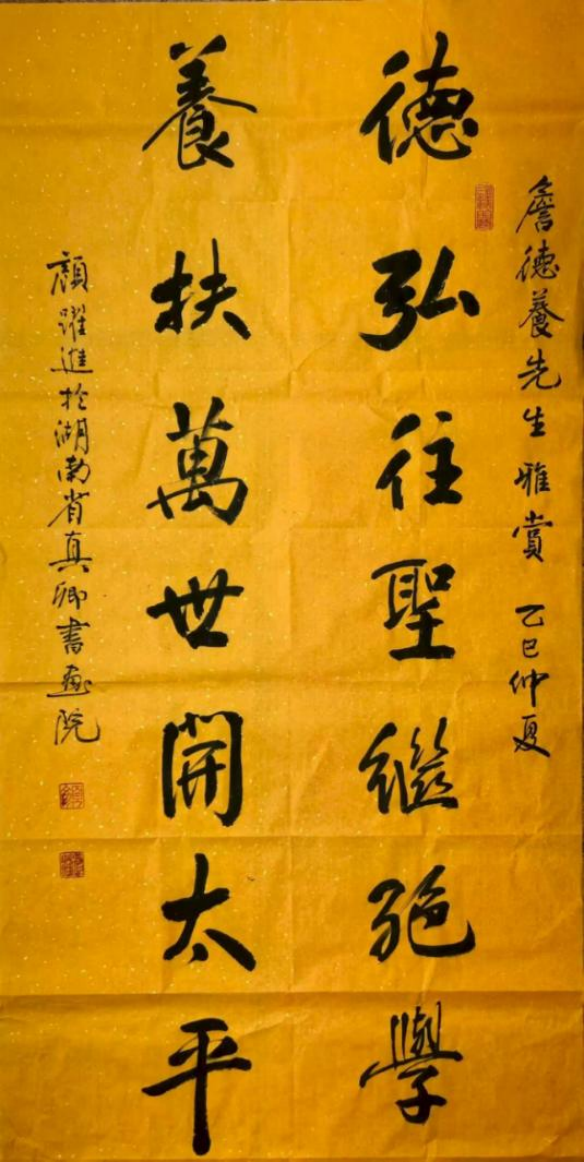 詹德養先生雅賞 乙巳仲夏
德弘往聖繼絕學
養扶萬世開太平
顏躍進於湖南省真卿書畫院